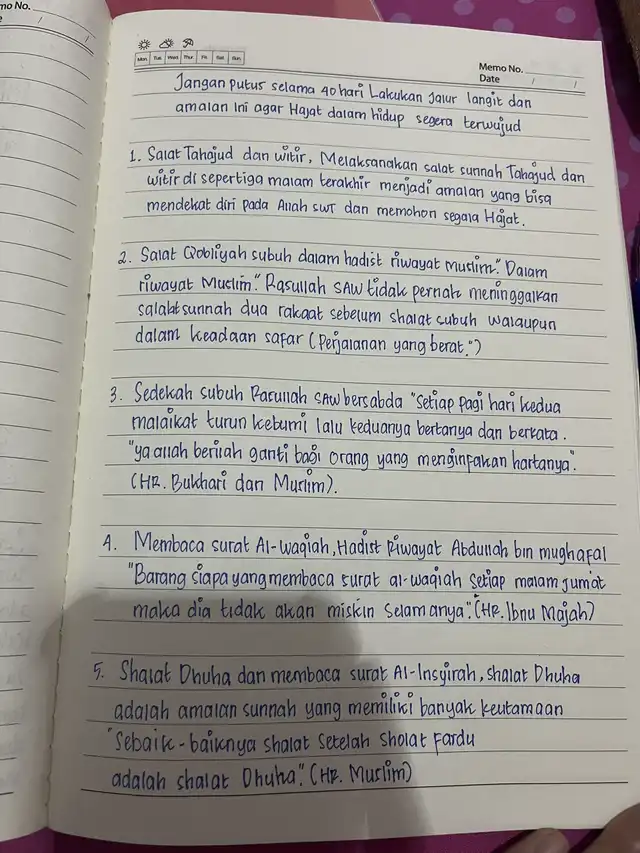 mo No.
Mon Tue Wed Thur Fri Sat Sun
Memo No.
Date / /
Jangan putus selama 40 hari Lakukan Jalur langit dan
amalan ini agar Hajat dalam hidup segera terwujud
1. Salat Tahajud dan witir, Melaksanakan salat sunnah Tahajud dan
witir di sepertiga malam terakhir menjadi amalan yang bisa
mendekat diri pada Allah SWT dan memohon segala Hajat.
2. Salat Qobliyah subuh dalam hadist riwayat Muslim." Dalam
riwayat Muslim." Rasullah SAW tidak pernah meninggalkan
salat sunnah dua rakaat sebelum shalat subuh walaupun
dalam keadaan safar (Perjalanan yang berat.")
3. Sedekah subuh Rasullah SAW bersabda "setiap pagi hari kedua
malaikat turun kebumi lalu keduanya bertanya dan berkata.
"ya allah berilah ganti bagi orang yang menginfakan hartanya".
(HR. Bukhari dan Muslim).
4. Membaca surat Al-waqiah, Hadist Riwayat Abdullah bin mughafal
"Barang siapa yang membaca surat al-waqiah setiap malam jumat
maka dia tidak akan miskin selamanya". (HR. Ibnu Majah)
5. Shalat Dhuha dan membaca surat Al-Insyirah, shalat Dhuha
adalah amalan sunnah yang memiliki banyak keutamaan
"Sebaik-baiknya shalat setelah sholat fardu
adalah shalat Dhuha". (HR. Muslim)